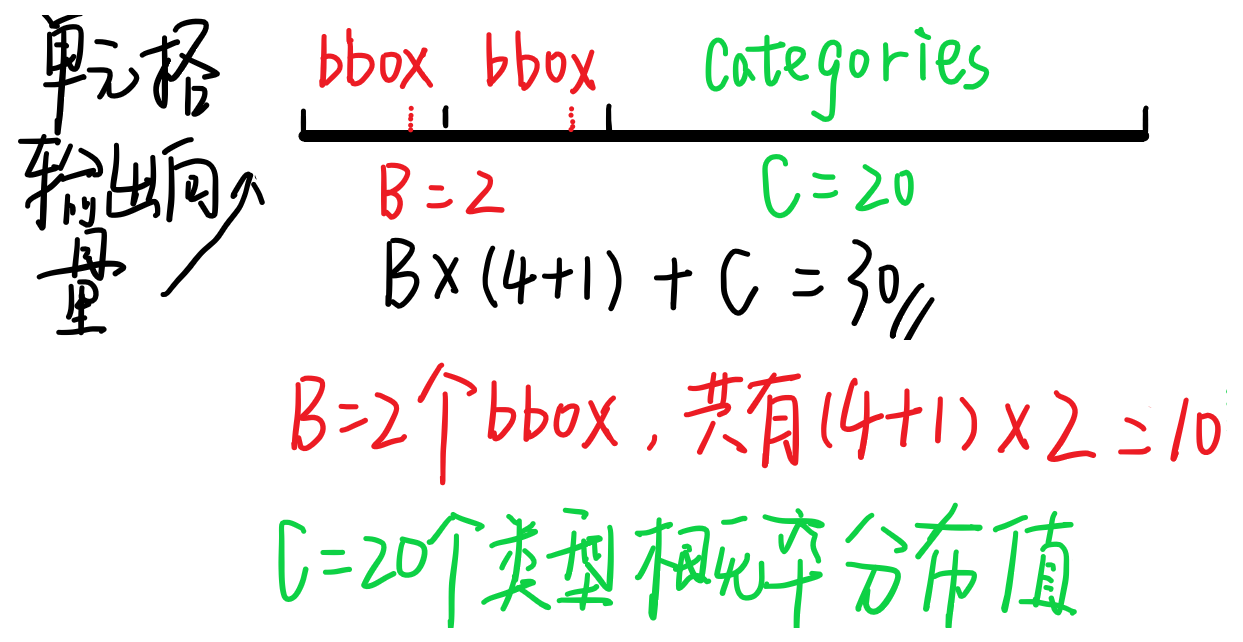 单元格
输出向
量
bbox bbox categories
B=2 C=20
B×(4+1)+C=30
B=2个bbox,共有(4+1)×2=10
C=20个类型概率分布值